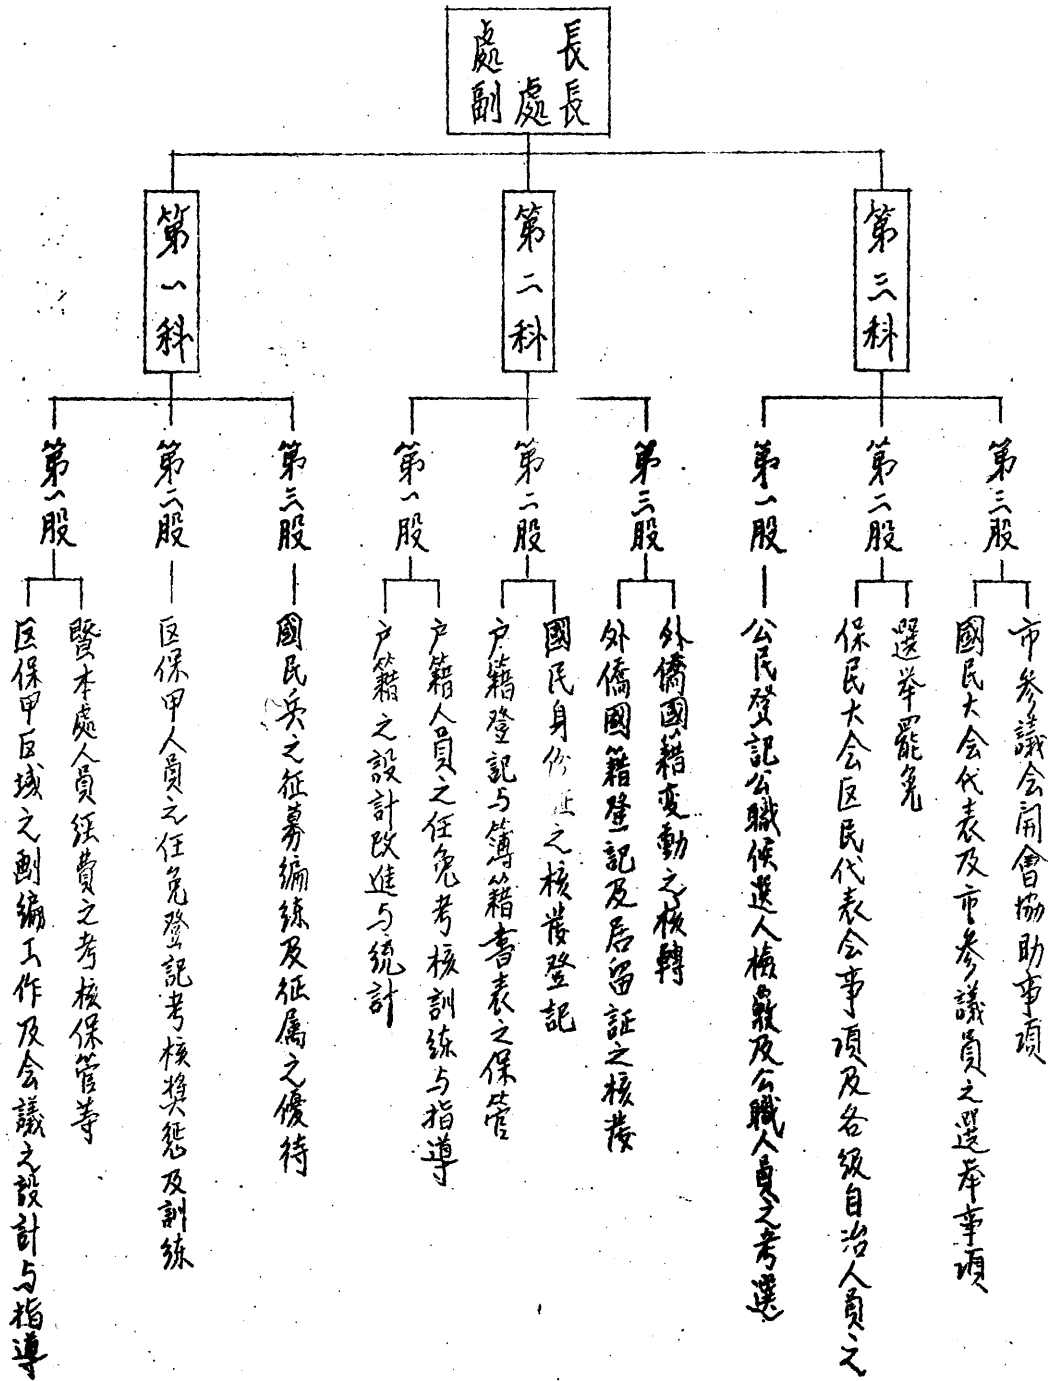 處長
副處長
第一科
第二科
第三科
第一股
第二股
第三股
第一股
第二股
第三股
第一股
第二股
第三股
区保甲区域之劃編工作及会議之設計与指導
暨本處人員経費之考核保管等
区保甲人員之任免登記考核奬惩及訓练
國民兵之征募编练及征属之優待
户籍之設計改進与統計
户籍人員之任免考核訓练与指導
户籍登記与簿籍書表之保管
國民身份証之核發登記
外僑國籍登記及居留証之核發
外僑國籍变動之核轉
公民登記公職候選人檢覈及公職人員之考選
保民大会区民代表会事項及各級自治人員之
選举罷免
國民大会代表及市参議員之選举事項
市参議会開會協助事項